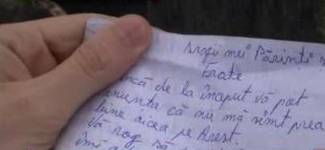 Dragii mei Părinți
frate
încă de la început vă pot
că nu mă simt prea
bine aicea pe
Vă rog să